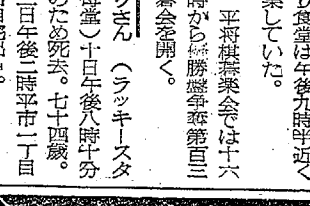 り食堂は午後九時半近く
業していた。
平将棋碁楽会では十六
時から
勝盤争奪第百三
碁会を開く。
クさん（ラッキースタ
母堂）十日午後八時十分
のため死去。七十四歳。
二日午後二時平市一丁目